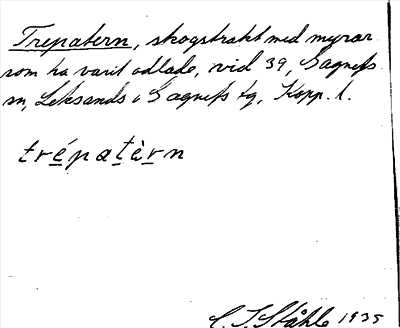 Trepatern, skogstrakt med myrar
som ha varit odlade, vid 39, Sagnefs
sn, Leksands o Gagnefs tg, Kopp. l.
trépatèrn
C. I. Ståhle 1935